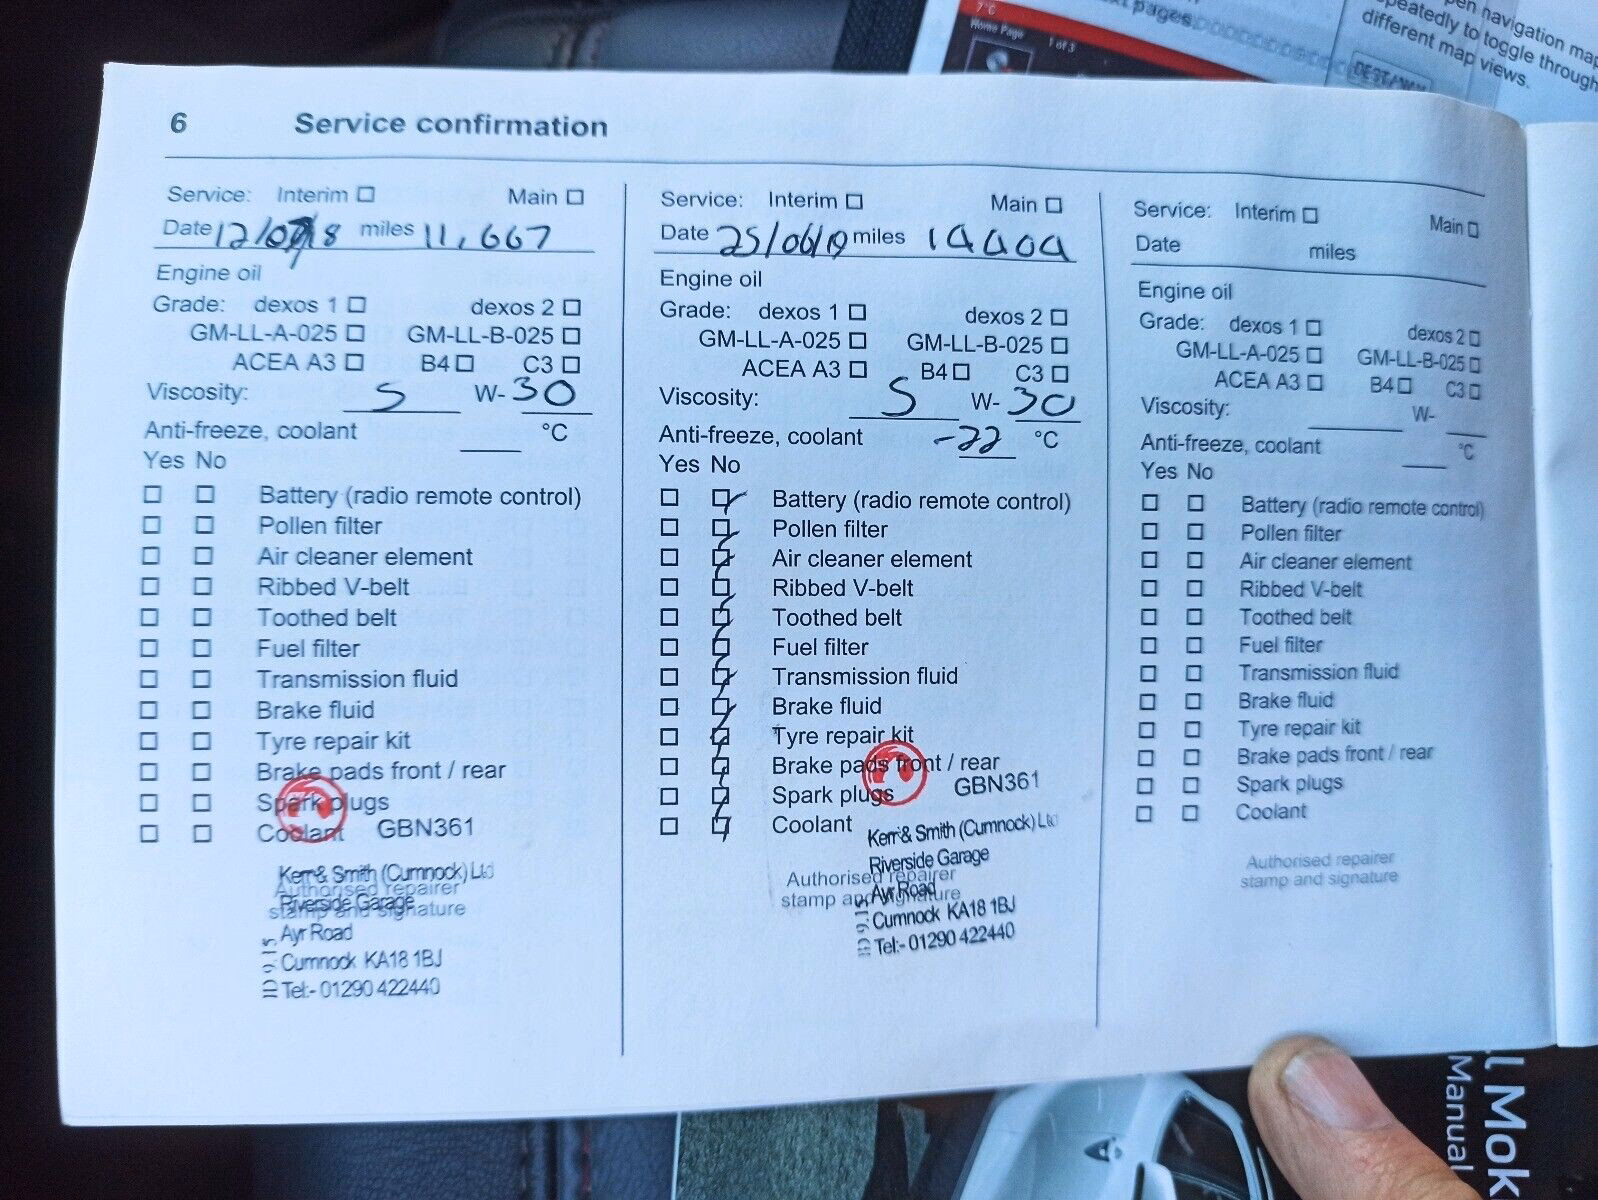 7°C
Home Page
1 of 3
pages
navigation map
repeatedly to toggle through
different map views.
6 Service confirmation
Service: Interim ☐ Main ☐
Date miles 11,667
Engine oil
Grade: dexos 1 ☐ dexos 2 ☐
GM-LL-A-025 ☐ GM-LL-B-025 ☐
ACEA A3 ☐ B4 ☐ C3 ☐
Viscosity: 5 W-30
Anti-freeze, coolant °C
Yes No
☐ ☐ Battery (radio remote control)
☐ ☐ Pollen filter
☐ ☐ Air cleaner element
☐ ☐ Ribbed V-belt
☐ ☐ Toothed belt
☐ ☐ Fuel filter
☐ ☐ Transmission fluid
☐ ☐ Brake fluid
☐ ☐ Tyre repair kit
☐ ☐ Brake pads front / rear
☐ ☐ Spark plugs
☐ ☐ Coolant
GBN361
Authorised repairer
stamp and signature
Kerr & Smith (Cumnock) Ltd
Riverside Garage
Ayr Road
Cumnock KA18 1BJ
Tel:- 01290 422440
Service: Interim ☐ Main ☐
Date 25/06/19 miles
Engine oil
Grade: dexos 1 ☐ dexos 2 ☐
GM-LL-A-025 ☐ GM-LL-B-025 ☐
ACEA A3 ☐ B4 ☐ C3 ☐
Viscosity: 5 W-30
Anti-freeze, coolant -22 °C
Yes No
☐ ☑ Battery (radio remote control)
☐ ☑ Pollen filter
☐ ☑ Air cleaner element
☐ ☑ Ribbed V-belt
☐ ☑ Toothed belt
☐ ☑ Fuel filter
☐ ☑ Transmission fluid
☐ ☑ Brake fluid
☐ ☑ Tyre repair kit
☐ ☑ Brake pads front / rear
☐ ☑ Spark plugs
☐ ☑ Coolant
GBN361
Authorised repairer
stamp and signature
Kerr & Smith (Cumnock) Ltd
Riverside Garage
Ayr Road
Cumnock KA18 1BJ
Tel:- 01290 422440
Service: Interim ☐ Main ☐
Date miles
Engine oil
Grade: dexos 1 ☐ dexos 2 ☐
GM-LL-A-025 ☐ GM-LL-B-025 ☐
ACEA A3 ☐ B4 ☐ C3 ☐
Viscosity: W-
Anti-freeze, coolant °C
Yes No
☐ ☐ Battery (radio remote control)
☐ ☐ Pollen filter
☐ ☐ Air cleaner element
☐ ☐ Ribbed V-belt
☐ ☐ Toothed belt
☐ ☐ Fuel filter
☐ ☐ Transmission fluid
☐ ☐ Brake fluid
☐ ☐ Tyre repair kit
☐ ☐ Brake pads front / rear
☐ ☐ Spark plugs
☐ ☐ Coolant
Authorised repairer
stamp and signature
Mok
Manual